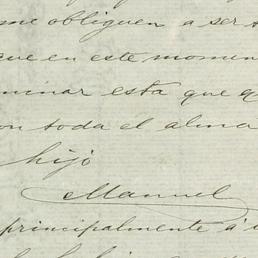 me obliguen a ser
que en este momen
minar esta que q
on toda el alma
hijo
Manuel
principalmente á